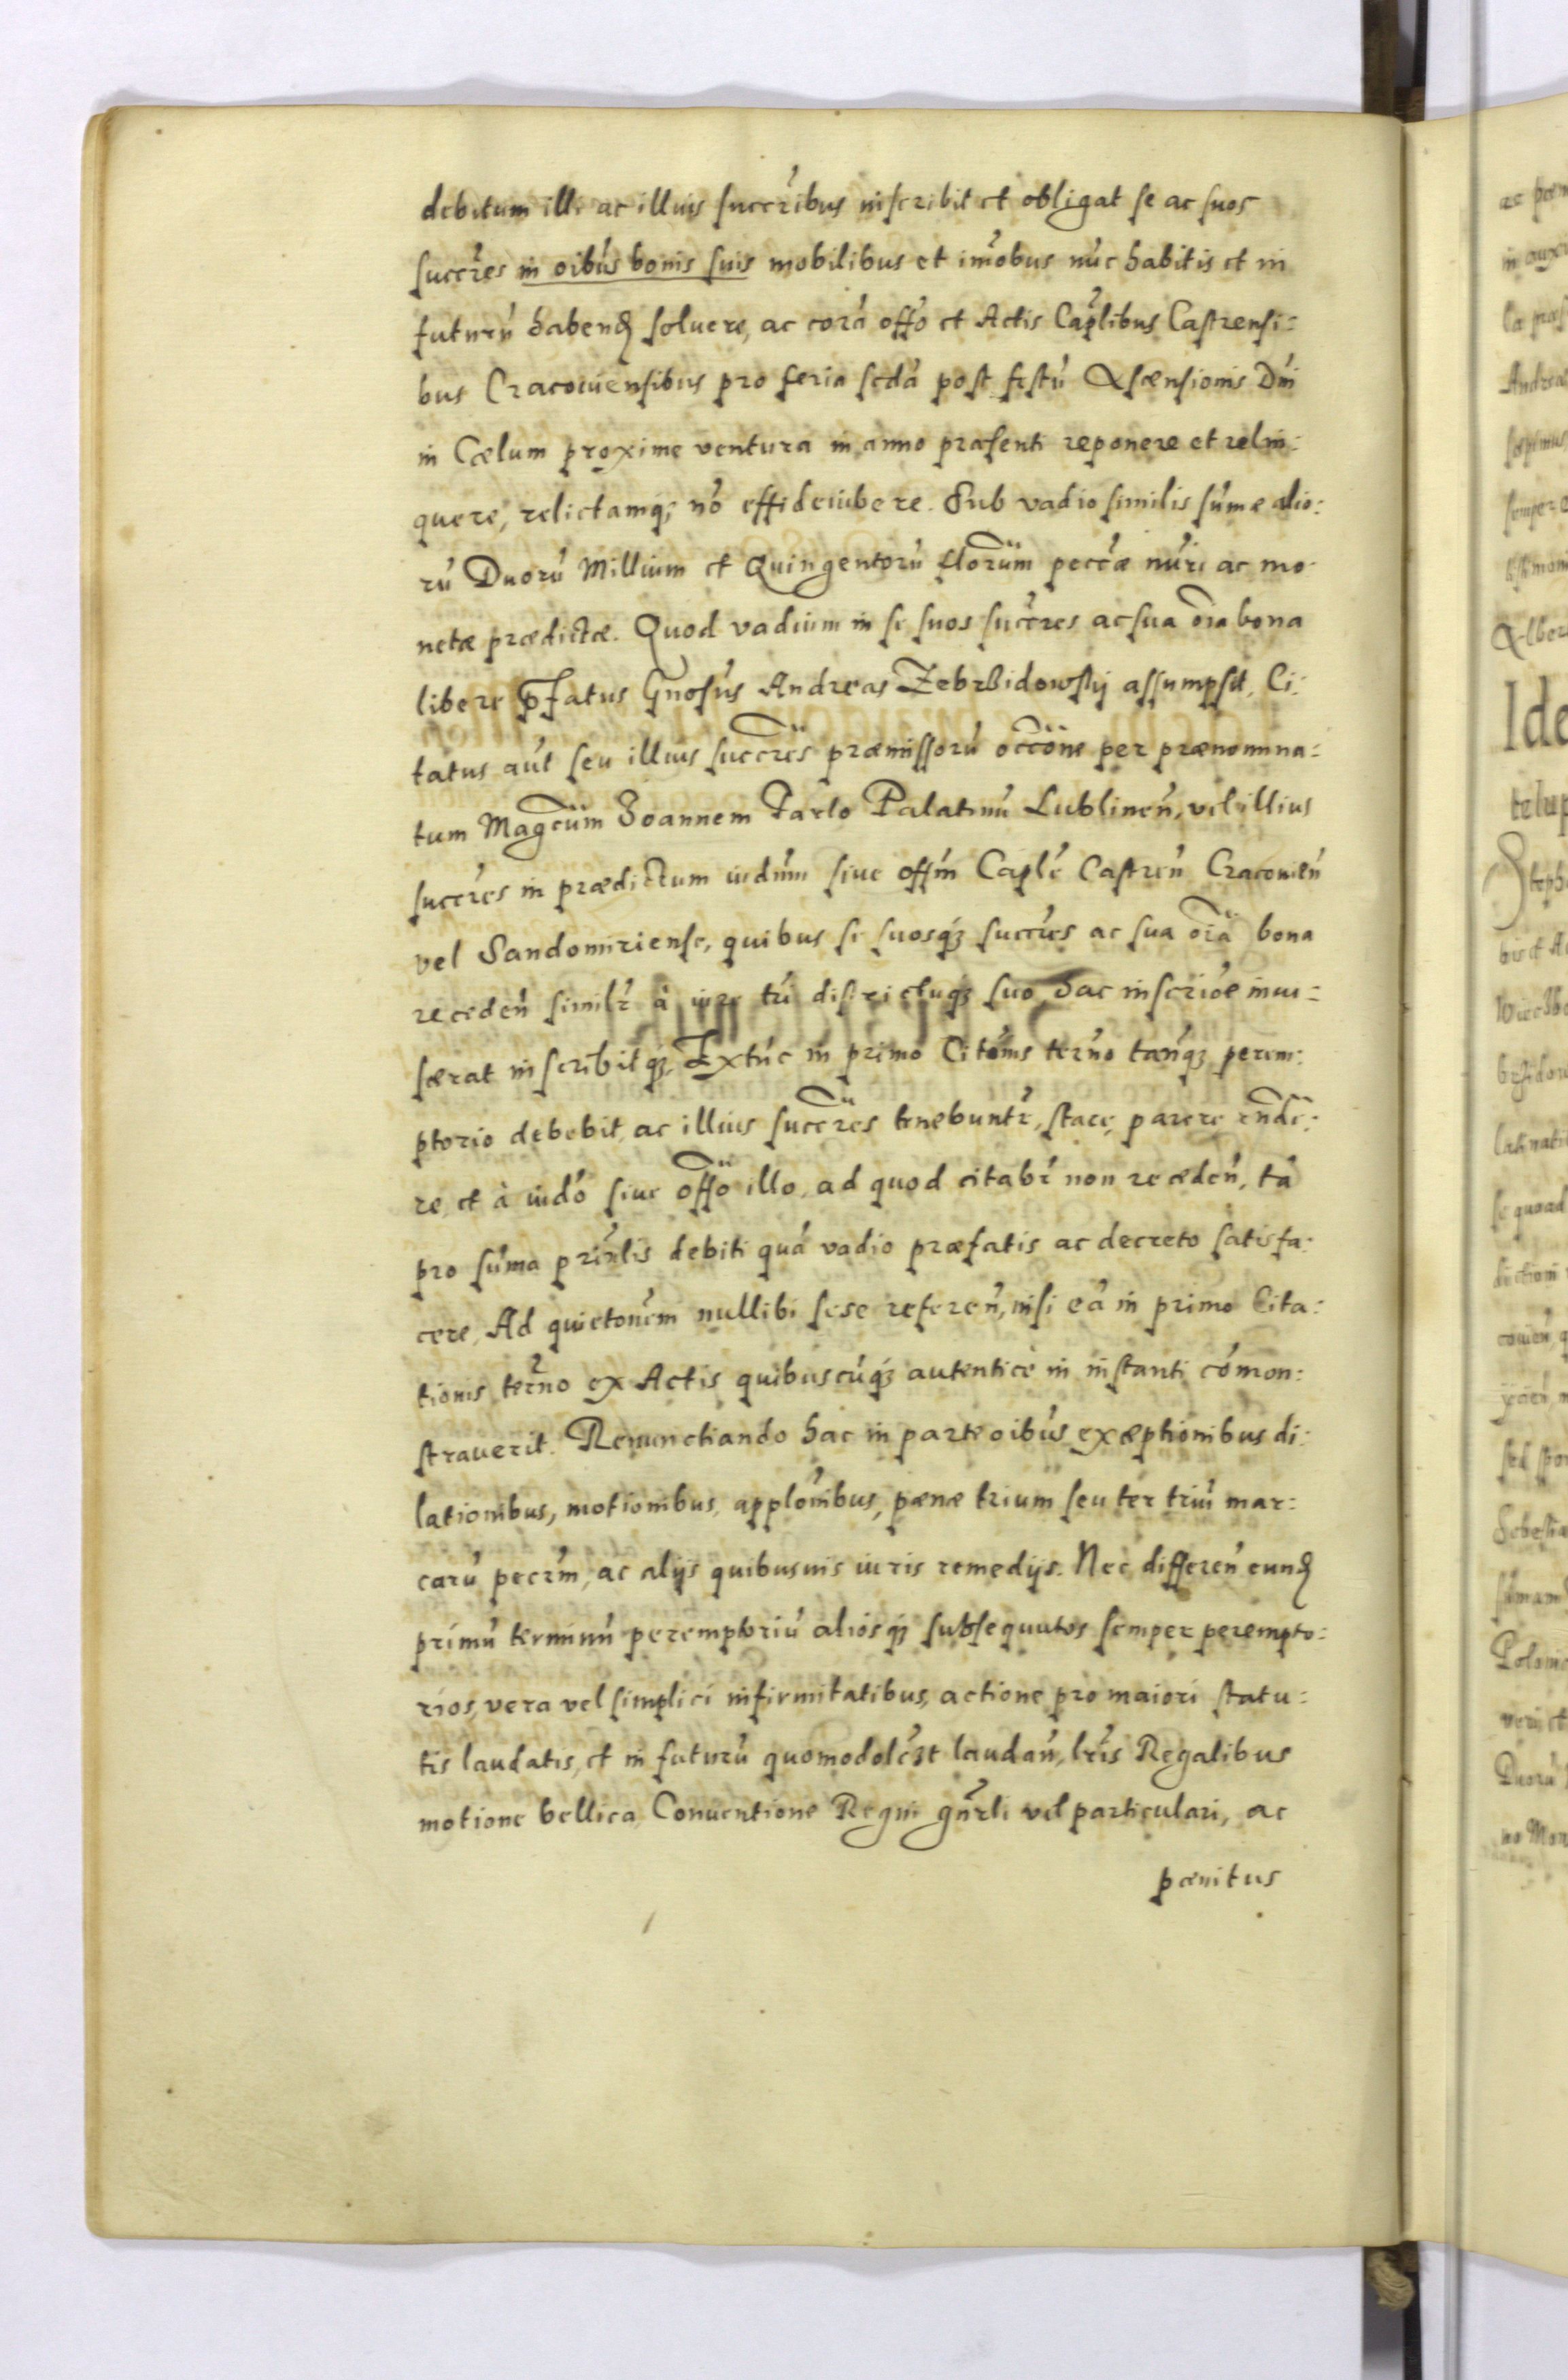 debitum illi ac illius succribus inscribit et obligat se ac suos
succres in oibus bonis suis mobilibus et imobus nuc habitis et in
futuru habend soluere, ac cora offo et Actis Caplibus Castrensi:
bus Cracouiensibus pro feria scda post festu Ascensionis Dni
in Cælum proxime ventura in anno præsenti reponere et relin:
quere, relictamq; no effideiubere. Sub vadio similis sumæ alio:
ru Duoru Millium et Quingentoru florum peccæ nuri ac mo-
netæ prædictæ. Quod vadium in se suos succres ac sua oia bona
libere pfatus Gnosus Andreas Zebrzidowskij assumpsit, Ci:
tatus aut seu illius succres præmissoru occone per prænomina:
tum Magcum Joannem Tarlo Palatinu Lublinen, vel illius
succres in prædictum iudum siue offm Caple Castren Cracouien
vel Sandomiriense, quibus se suosq; succres ac sua oia bona
receden similr à iure tri districtuq; suo, hac inscrioe inui:
scerat inscribitq;. Extuc in primo Citonis terno tanq; perem:
ptorio debebit, ac illius succres tenebuntr, stare, parere rnde:
re, et à iudo siue offo illo, ad quod citabr non receden, ta
pro suma prinlis debiti qua vadio præfatis ac decreto satisfa:
cere, Ad quietonem nullibi sese referen, nisi ea in primo Cita:
tionis terno ex Actis quibuscuq; autenticè in instanti comon:
strauerit. Renunctiando hac in parte oibus exceptionibus di:
lationibus, motionibus, applonibus, pænæ trium seu ter triu mar:
caru pecrm, ac alijs quibusuis iuris remedijs. Nec differen eund
primu terminu peremptoriu aliosq; subsequutos semper perempto:
rios, vera vel simplici infirmitatibus, actione pro maiori statu:
tis laudatis, et in futuru quomodolczt laudan, lris Regalibus
motione bellica Conuentione Regni gnrli vel particulari, ac
pænitus